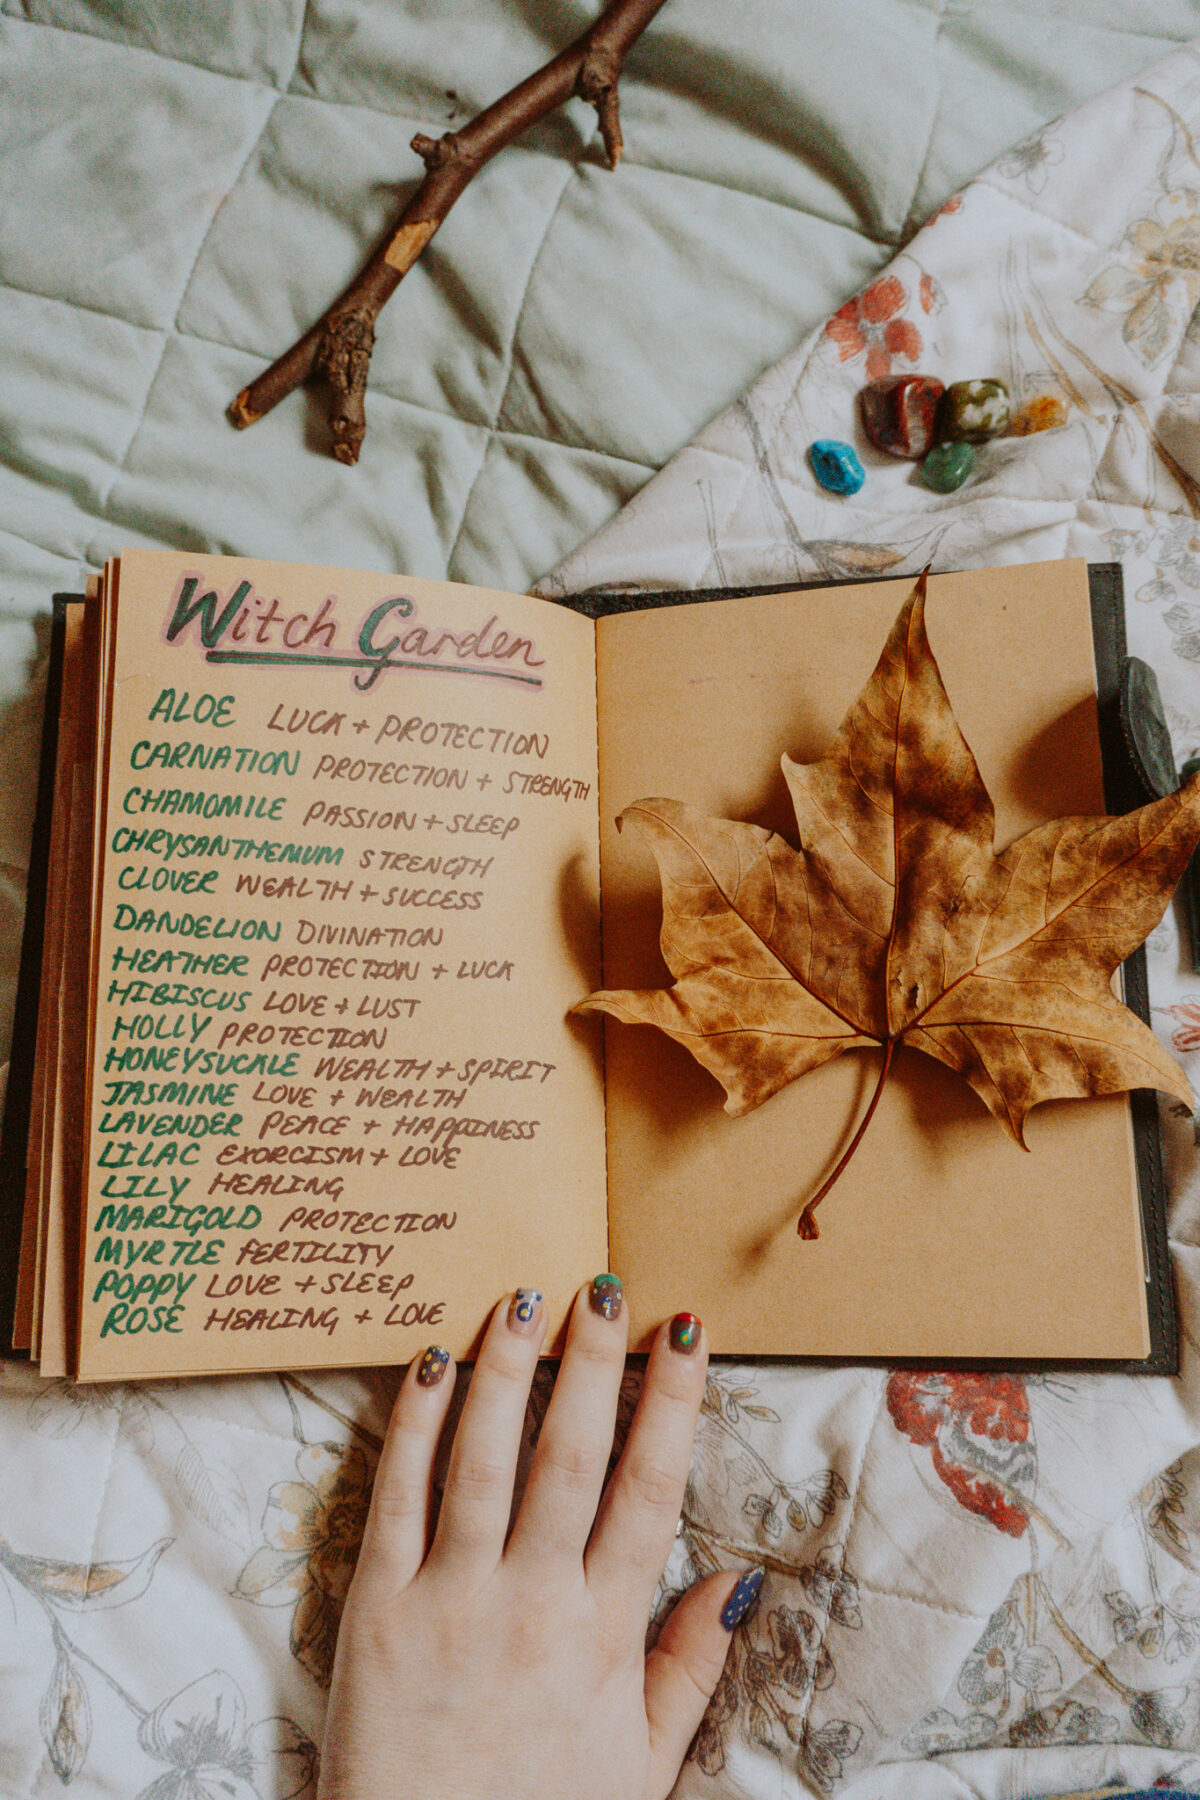 Witch Garden
ALOE LUCK + PROTECTION
CARNATION PROTECTION + STRENGTH
CHAMOMILE PASSION + SLEEP
CHRYSANTHEMUM STRENGTH
CLOVER WEALTH + SUCCESS
DANDELION DIVINATION
HEATHER PROTECTION + LUCK
HIBISCUS LOVE + LUST
HOLLY PROTECTION
HONEYSUCKLE WEALTH + SPIRIT
JASMINE LOVE + WEALTH
LAVENDER PEACE + HAPPINESS
LILAC EXORCISM + LOVE
LILY HEALING
MARIGOLD PROTECTION
MYRTLE FERTILITY
POPPY LOVE + SLEEP
ROSE HEALING + LOVE